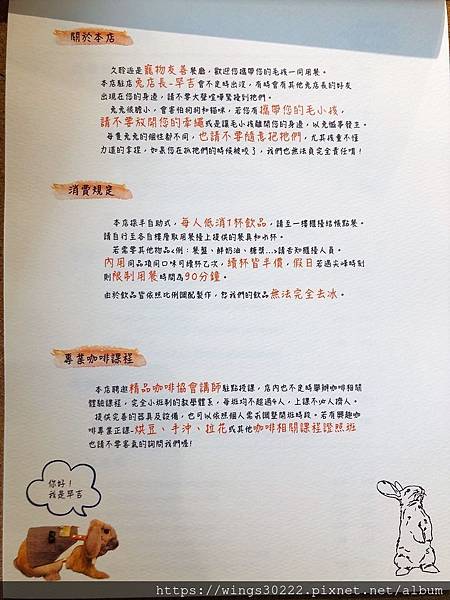 關於本店
久聆遊是寵物友善餐廳，歡迎您攜帶您的毛孩一同用餐。
本店駐店兔店長-早吉會不定時出沒，有時會有其他兔店長的好友
出現在您的身邊，請不要大聲喧嘩驚擾到牠們。
兔兔很膽小，會害怕狗狗和貓咪，若您有攜帶您的毛小孩，
請不要放開您的牽繩或是讓毛小孩離開您的身邊，以免憾事發生。
每隻兔兔的個性都不同，也請不要隨意抱牠們，尤其孩童不懂
力道的拿捏，如果您在抓牠們的時候被咬了，我們也無法負完全責任唷！
消費規定
本店採半自助式，每人低消1杯飲品，請至一樓櫃檯結帳點餐。
請自行至各自樓層取用餐檯上提供的餐具和水杯。
若需要其他物品(例：餐盤、鮮奶油、糖漿...)請告知櫃檯人員。
內用同品項同口味可續杯乙次，續杯皆半價，假日若遇尖峰時刻
則限制用餐時間為90分鐘。
由於飲品皆依照比例調配製作，恕我們的飲品無法完全去冰。
專業咖啡課程
本店聘邀精品咖啡協會講師駐點授課，店內也不定時舉辦咖啡相關
體驗課程，完全小班制的教學體系，每班均不超過4人，上課不必人擠人。
提供完善的器具及設備，也可以依照個人需求調整開班時段。若有興趣咖
啡專業正課-烘豆、手沖、拉花或其他咖啡相關課程證照班
也請不要客氣的詢問我們喔！
你好！
我是早吉
https://wings30222.pixnet.net/album